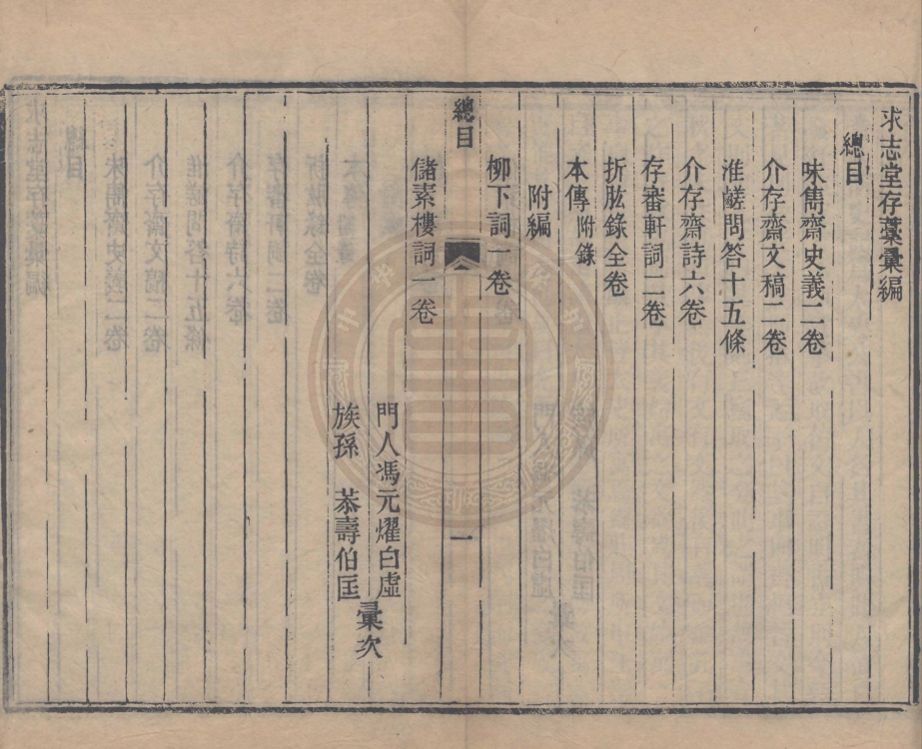 求志堂存藁彙編
總目
味雋齋史義二卷
介存齋文稿二卷
淮鹺問答十五條
介存齋詩六卷
存審軒詞二卷
折肱錄全卷
本傳附錄
附編
柳下詞一卷
總目
一
儲素樓詞一卷
門人馮元燿白虛
族孫 恭壽伯匡
彙次